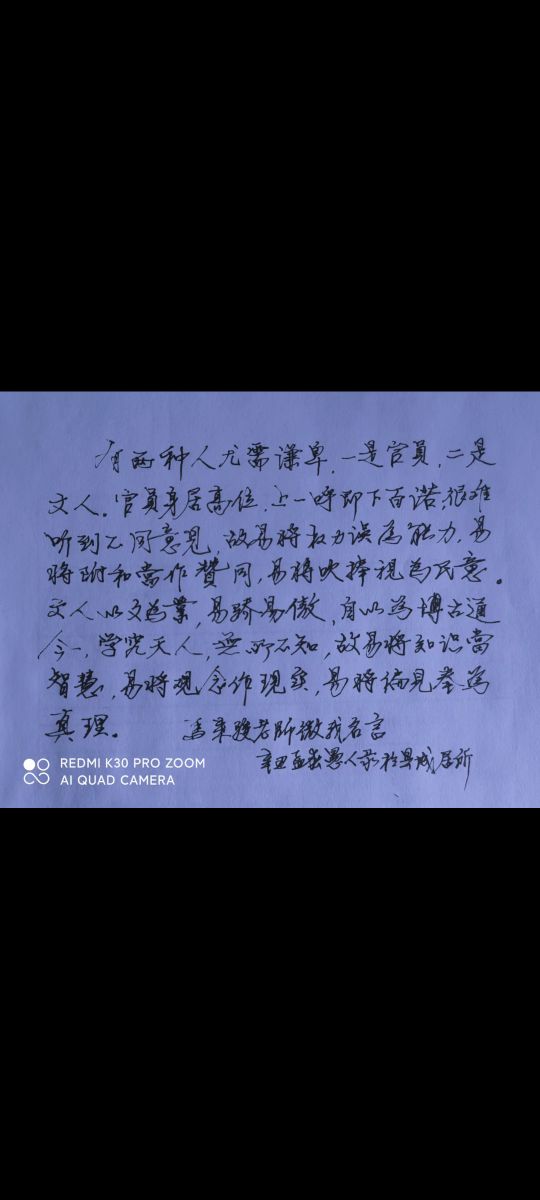 有两种人尤需谦卑,一是官員,二是
文人。官員身居高位,上一呼即下百诺,很难
听到不同意見,故易将权力误為能力,易
将附和當作贊同,易将吹捧視為民意。
文人以文為業,易骄易傲,自以為博古通
今,学究天人,無所不知,故易将知识當
智慧,易将观念作现实,易将偏見奉為
真理。 馮秉骏老師微我名言
辛丑孟 愚人录於 城居所
REDMI K30 PRO ZOOM
AI QUAD CAMERA